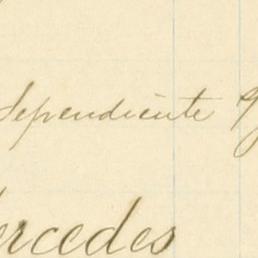 dependiente
ercedes